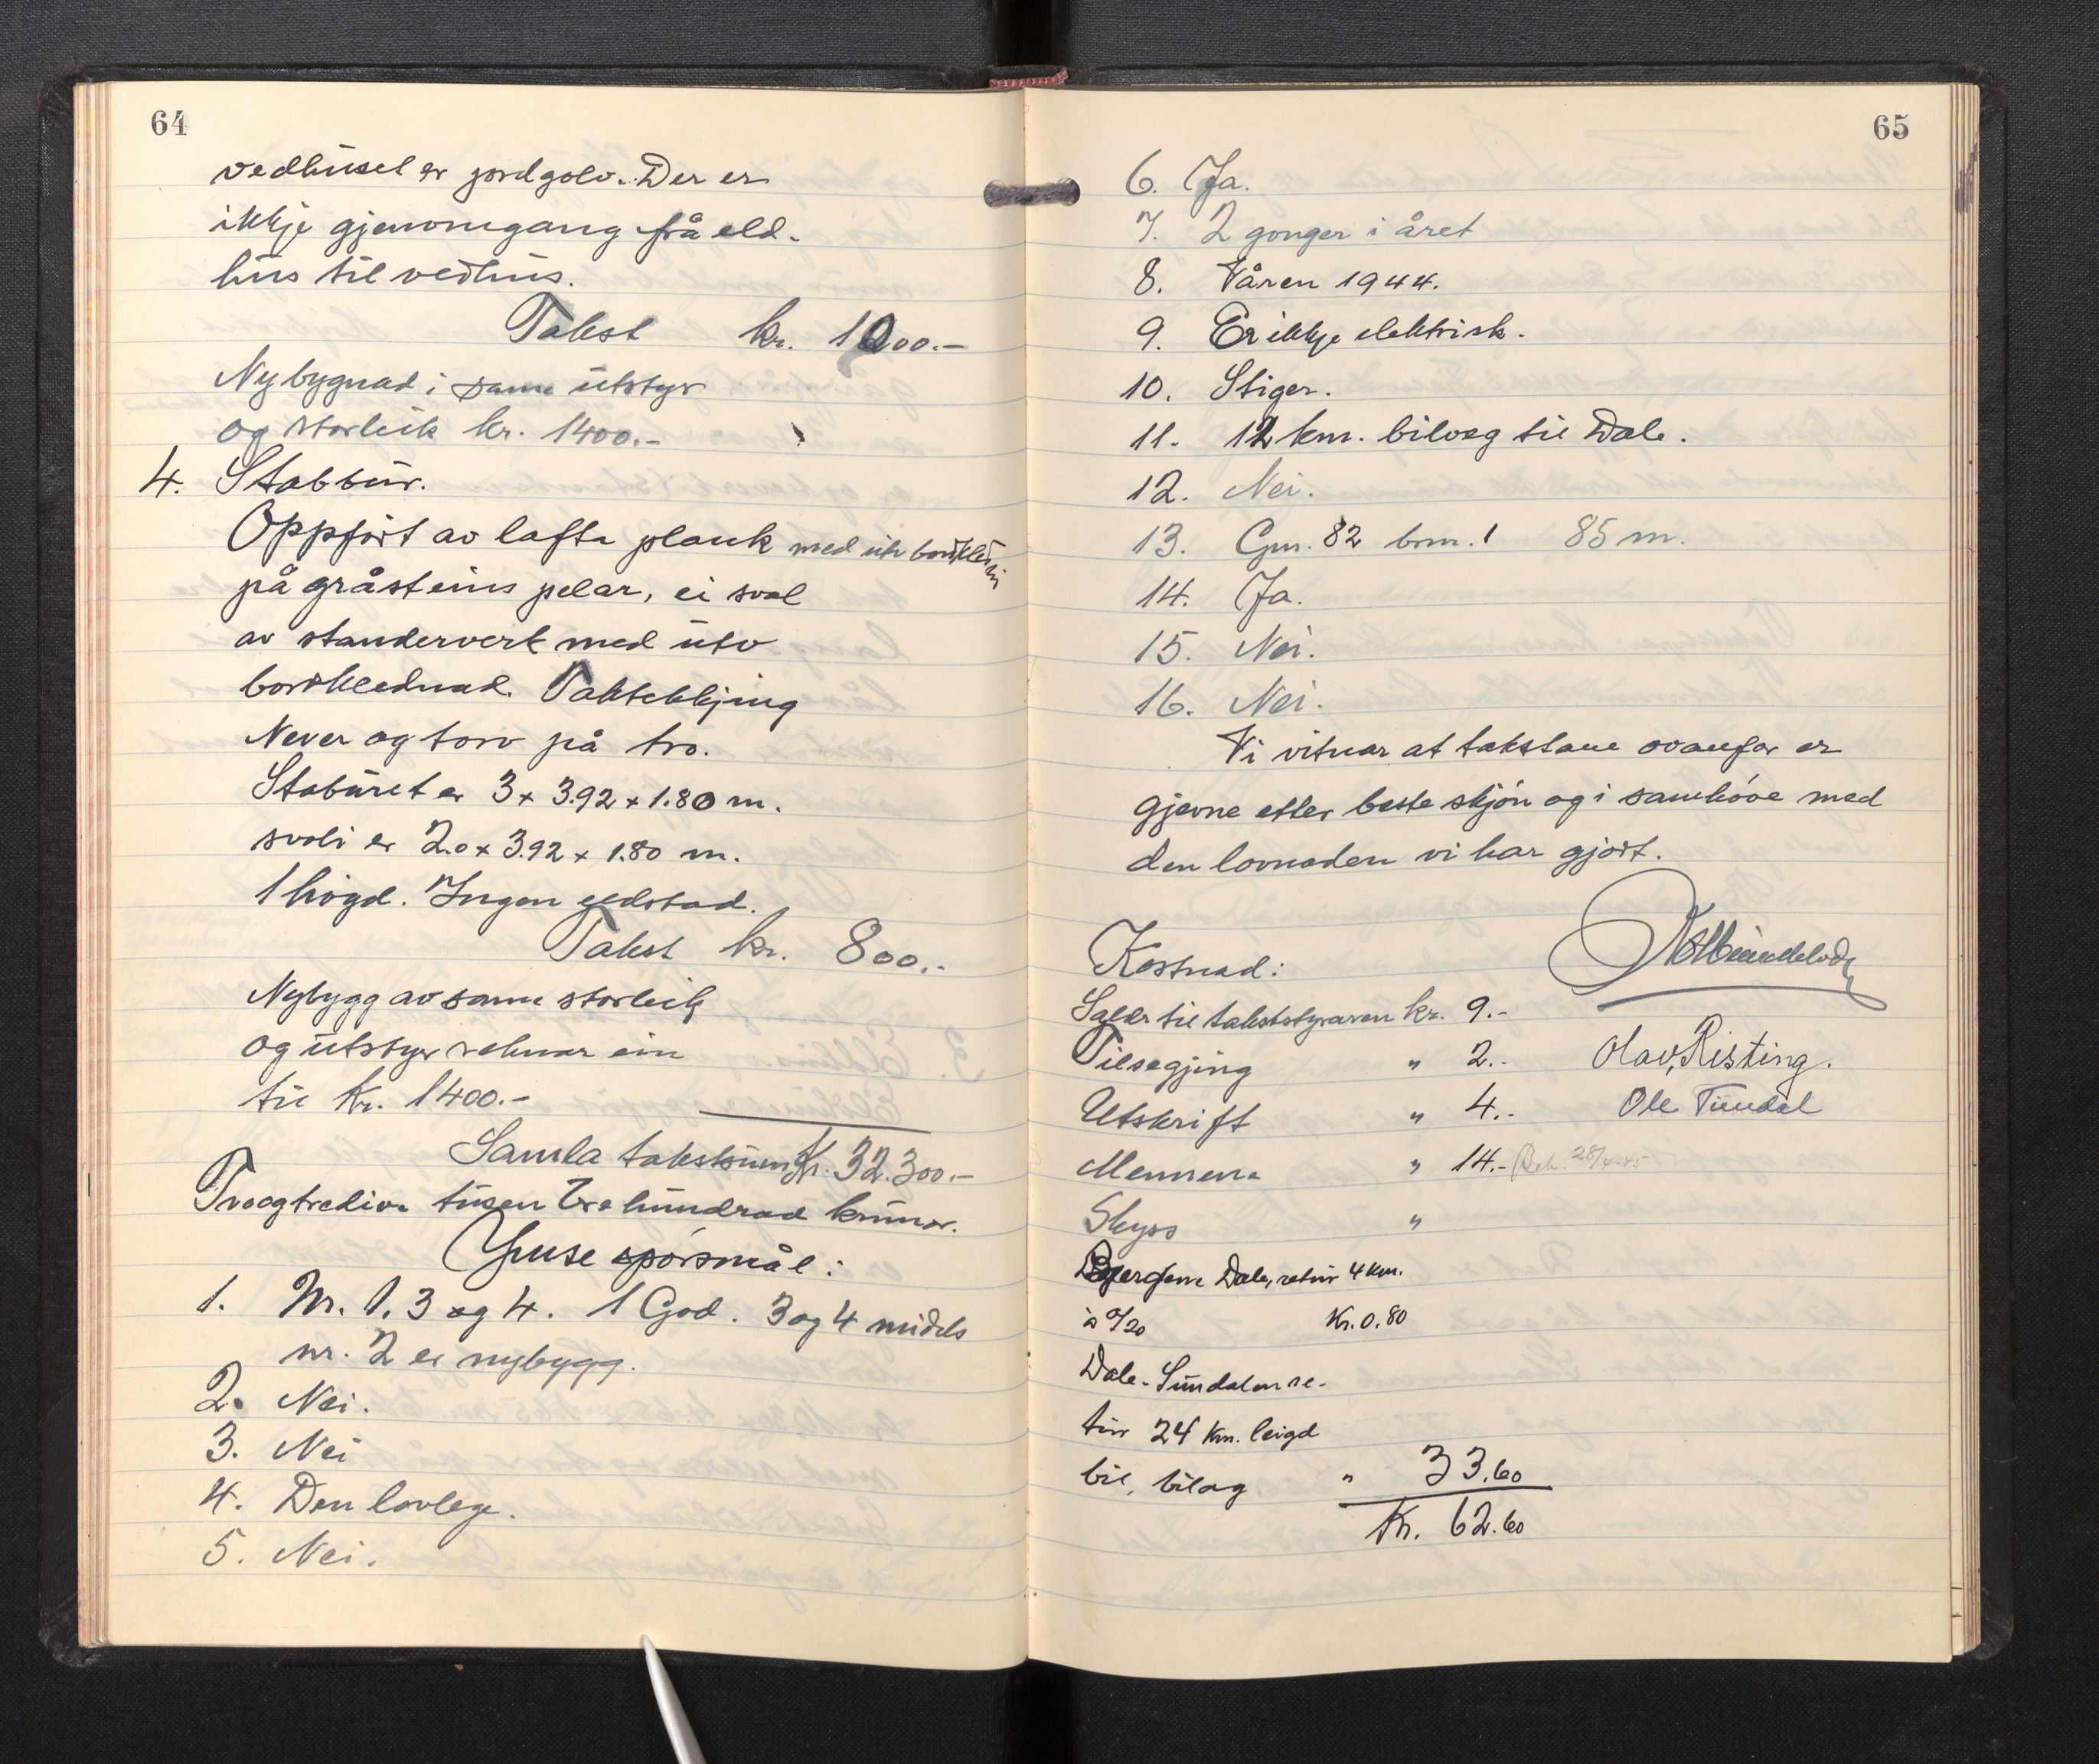 64
vedhuset er jordgolv. Der er
ikkje gjenomgang frå eld-
hus til vedhus.
Takst kr. 1000.-
Nybygnad i same utstyr
og storleik kr. 1400.-
4. Stabbur.
Oppført av lafta plank med utv bordkledni
på gråsteins pelar, ei sval
av standerverk med utv
bordklednad. Taktekkjing
Never og torv på tro.
Staburet er 3 x 3.92 x 1.80 m.
svoli er 2.0 x 3.92 x 1.80 m.
1 høgd. Ingen eldstad.
Takst kr. 800.-
Nybygg av same storleik
og utstyr reknar ein
til kr. 1400.-
Samla takstsum Kr. 32.300.-
Tvoogtredive tusen tre hundrad krunor.
Ymse spørsmål:
1. Nr. 1, 3 og 4. 1 God. 3 og 4 midels
nr. 2 er nybygg.
2. Nei.
3. Nei
4. Den lovlege.
5. Nei.
65
6. Ja.
7. 2 gonger i året
8. Våren 1944.
9. Er ikkje elektrisk.
10. Stiger.
11. 12 km. bilveg til Dale.
12. Nei.
13. Gnr. 82 bnr. 1 85 m.
14. Ja.
15. Nei.
16. Nei.
Vi vitnar at takstane ovanfor er
gjevne etter beste skjøn og i samhøve med
den lovnaden vi har gjort.
Kostnad:
Salær til takststyraren kr. 9.-
Tilsegjing " 2.- Olav Risting.
Utskrift " 4.- Ole Tundal
Mennene " 14.- 28/4-45
Skyss "
Dale, retur 4 km.
à 0/20 Kr. 0.80
Dale - Sundalen re-
tur 24 km. leigd
bil, bilag " 33.60
Kr. 62.60